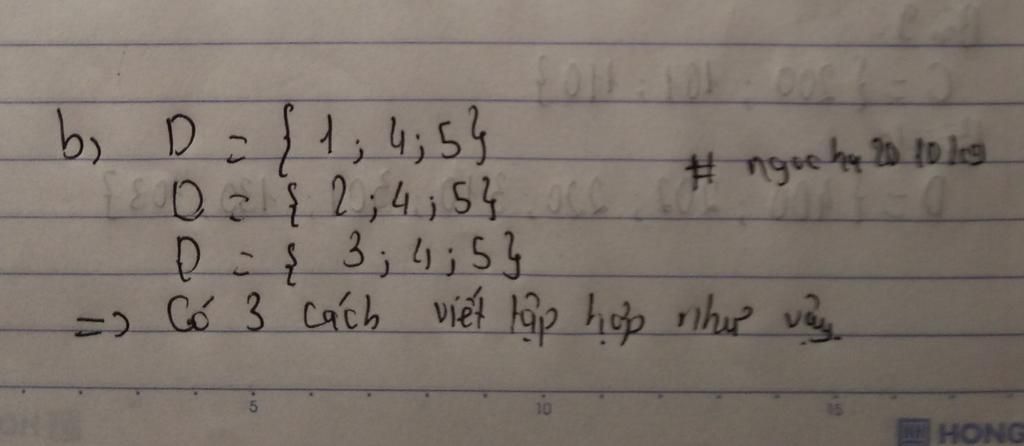 b, D = { 1 ; 4 ; 5 }
# ngocha 20 10
D = { 2 ; 4 ; 5 }
D = { 3 ; 4 ; 5 }
=> Có 3 cách viết tập hợp như vậy
5 10 15
HONG